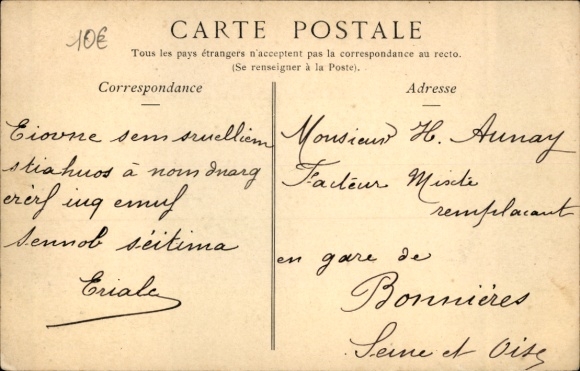 10€
CARTE POSTALE
Tous les pays étrangers n'acceptent pas la correspondance au recto.
(Se renseigner à la Poste).
Correspondance
Eiovne sem sruelliem
stiahuos à nom dnarg
erèrf iuq emuf
sennob séitima
Eriale
Adresse
Monsieur H. Aunay
Facteur Mixte
remplacant
en gare de
Bonnières
Seine et Oise